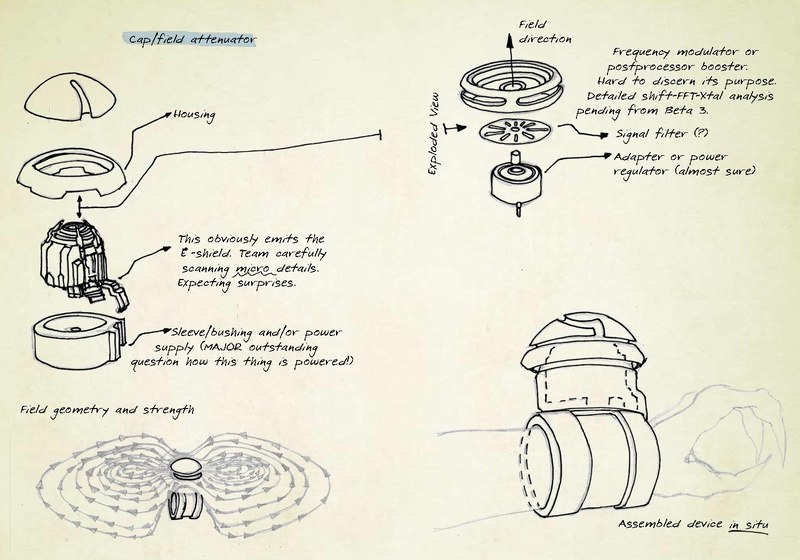 Cap/field attenuator
Housing
This obviously emits the
E-shield. Team carefully
scanning micro details.
Expecting surprises.
Sleeve/bushing and/or power
supply (MAJOR outstanding
question how this thing is powered!)
Field geometry and strength
Field
direction
Exploded View
Frequency modulator or
postprocessor booster.
Hard to discern its purpose.
Detailed shift-FFT-Xtal analysis
pending from Beta 3.
Signal filter (?)
Adapter or power
regulator (almost sure)
Assembled device in situ